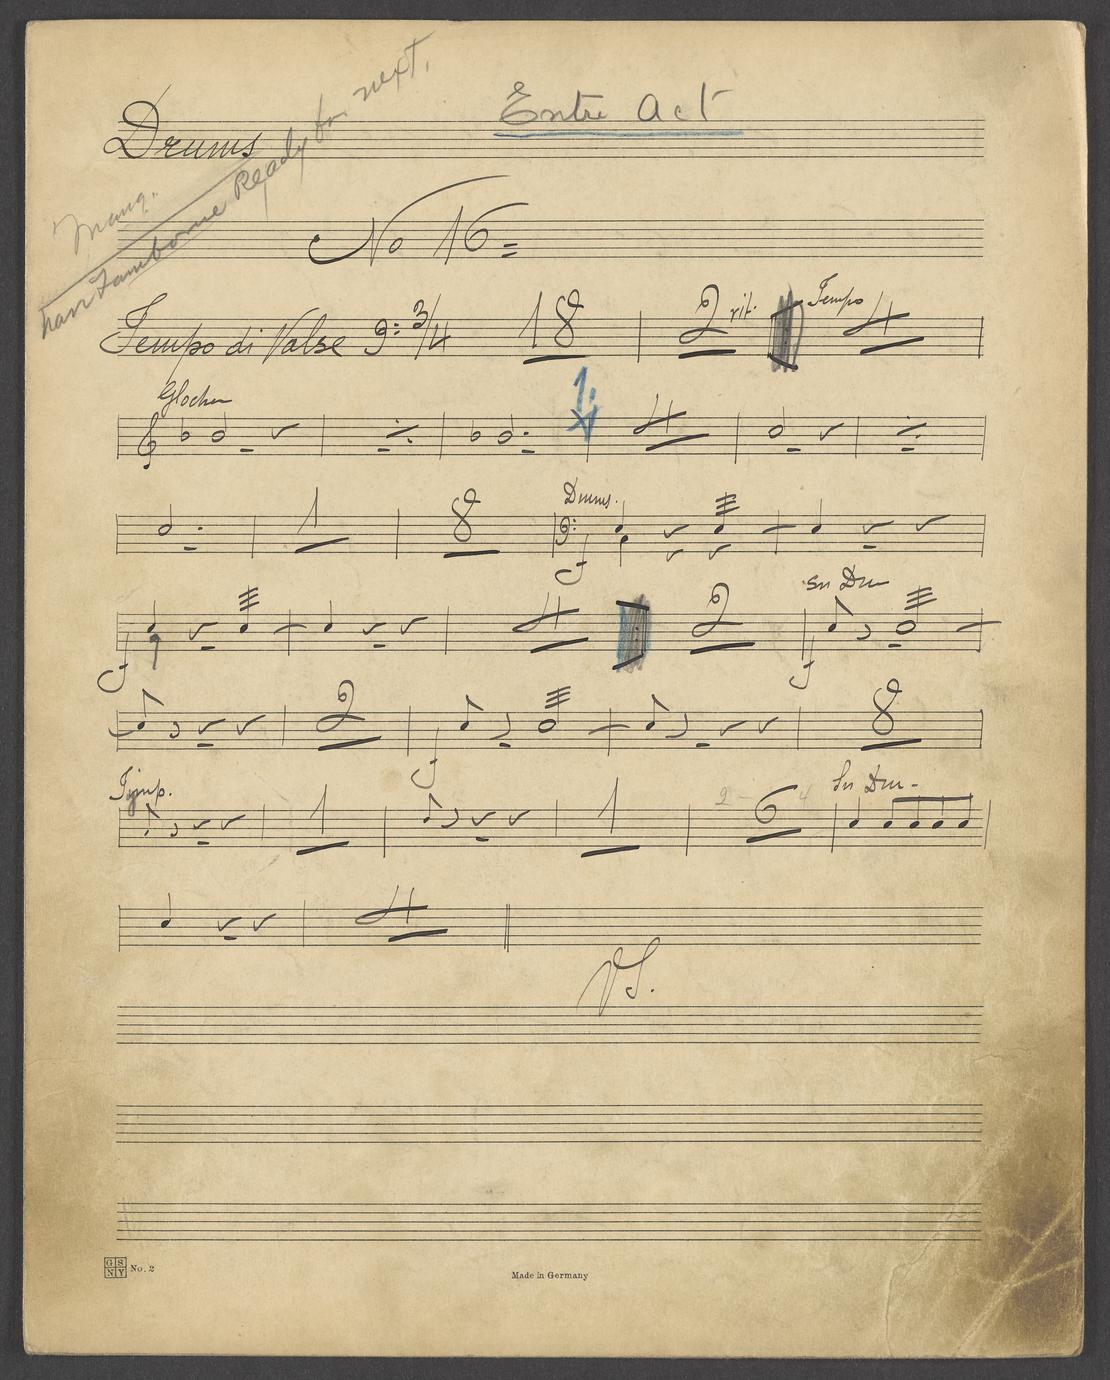 next.
Entre Act
Drums
Ready for
have Tamborine
No 16
Tempo di Valse 3/4 18 2 rit. Tempo 4
Glocken
1.
4
1 8 Drums.
f
4 2 Sn Dm
f f
2 8
f
Tymp. 1 1 2 - 4 6 Sn Dm -
4
VS.
GS
NY No. 2
Made in Germany